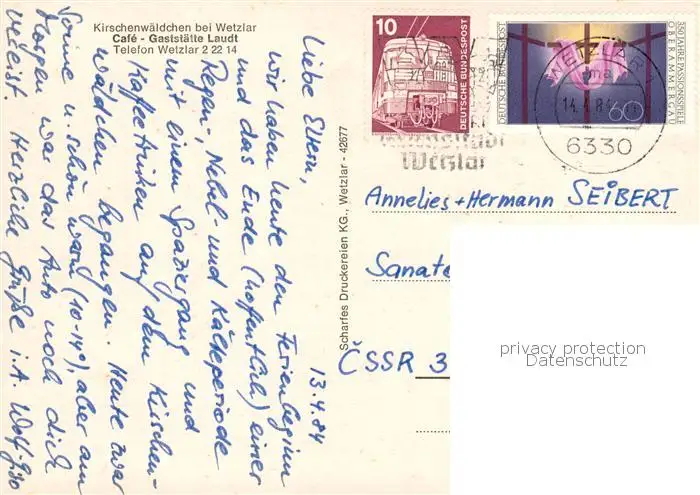 Kirschenwäldchen bei Wetzlar
Café - Gaststätte Laudt
Telefon Wetzlar 2 22 14
13.4.84
Liebe Eltern,
wir haben heute den Ferienbeginn
und das Ende (hoffentlich) einer
Regen-, Nebel- und Kälteperiode
mit einem Spaziergang und
Kaffeetrinken auf dem Kirschen-
wäldchen begangen. Heute zwar
Sonne u. schön warm (10-14°), aber am
Morgen war das Auto noch dick
vereist. Herzliche Grüße i.A. Wolf-
Scharfes Druckereien KG., Wetzlar - 42677
10
DEUTSCHE BUNDESPOST
DEUTSCHE BUNDESPOST
350 JAHRE PASSIONSSPIELE
OBERAMMERGAU
60
WETZLAR
ma
14.4.84
6330
Wetzlar
Annelies + Hermann SEIBERT
Sanat
ČSSR 3
privacy protection
Datenschutz